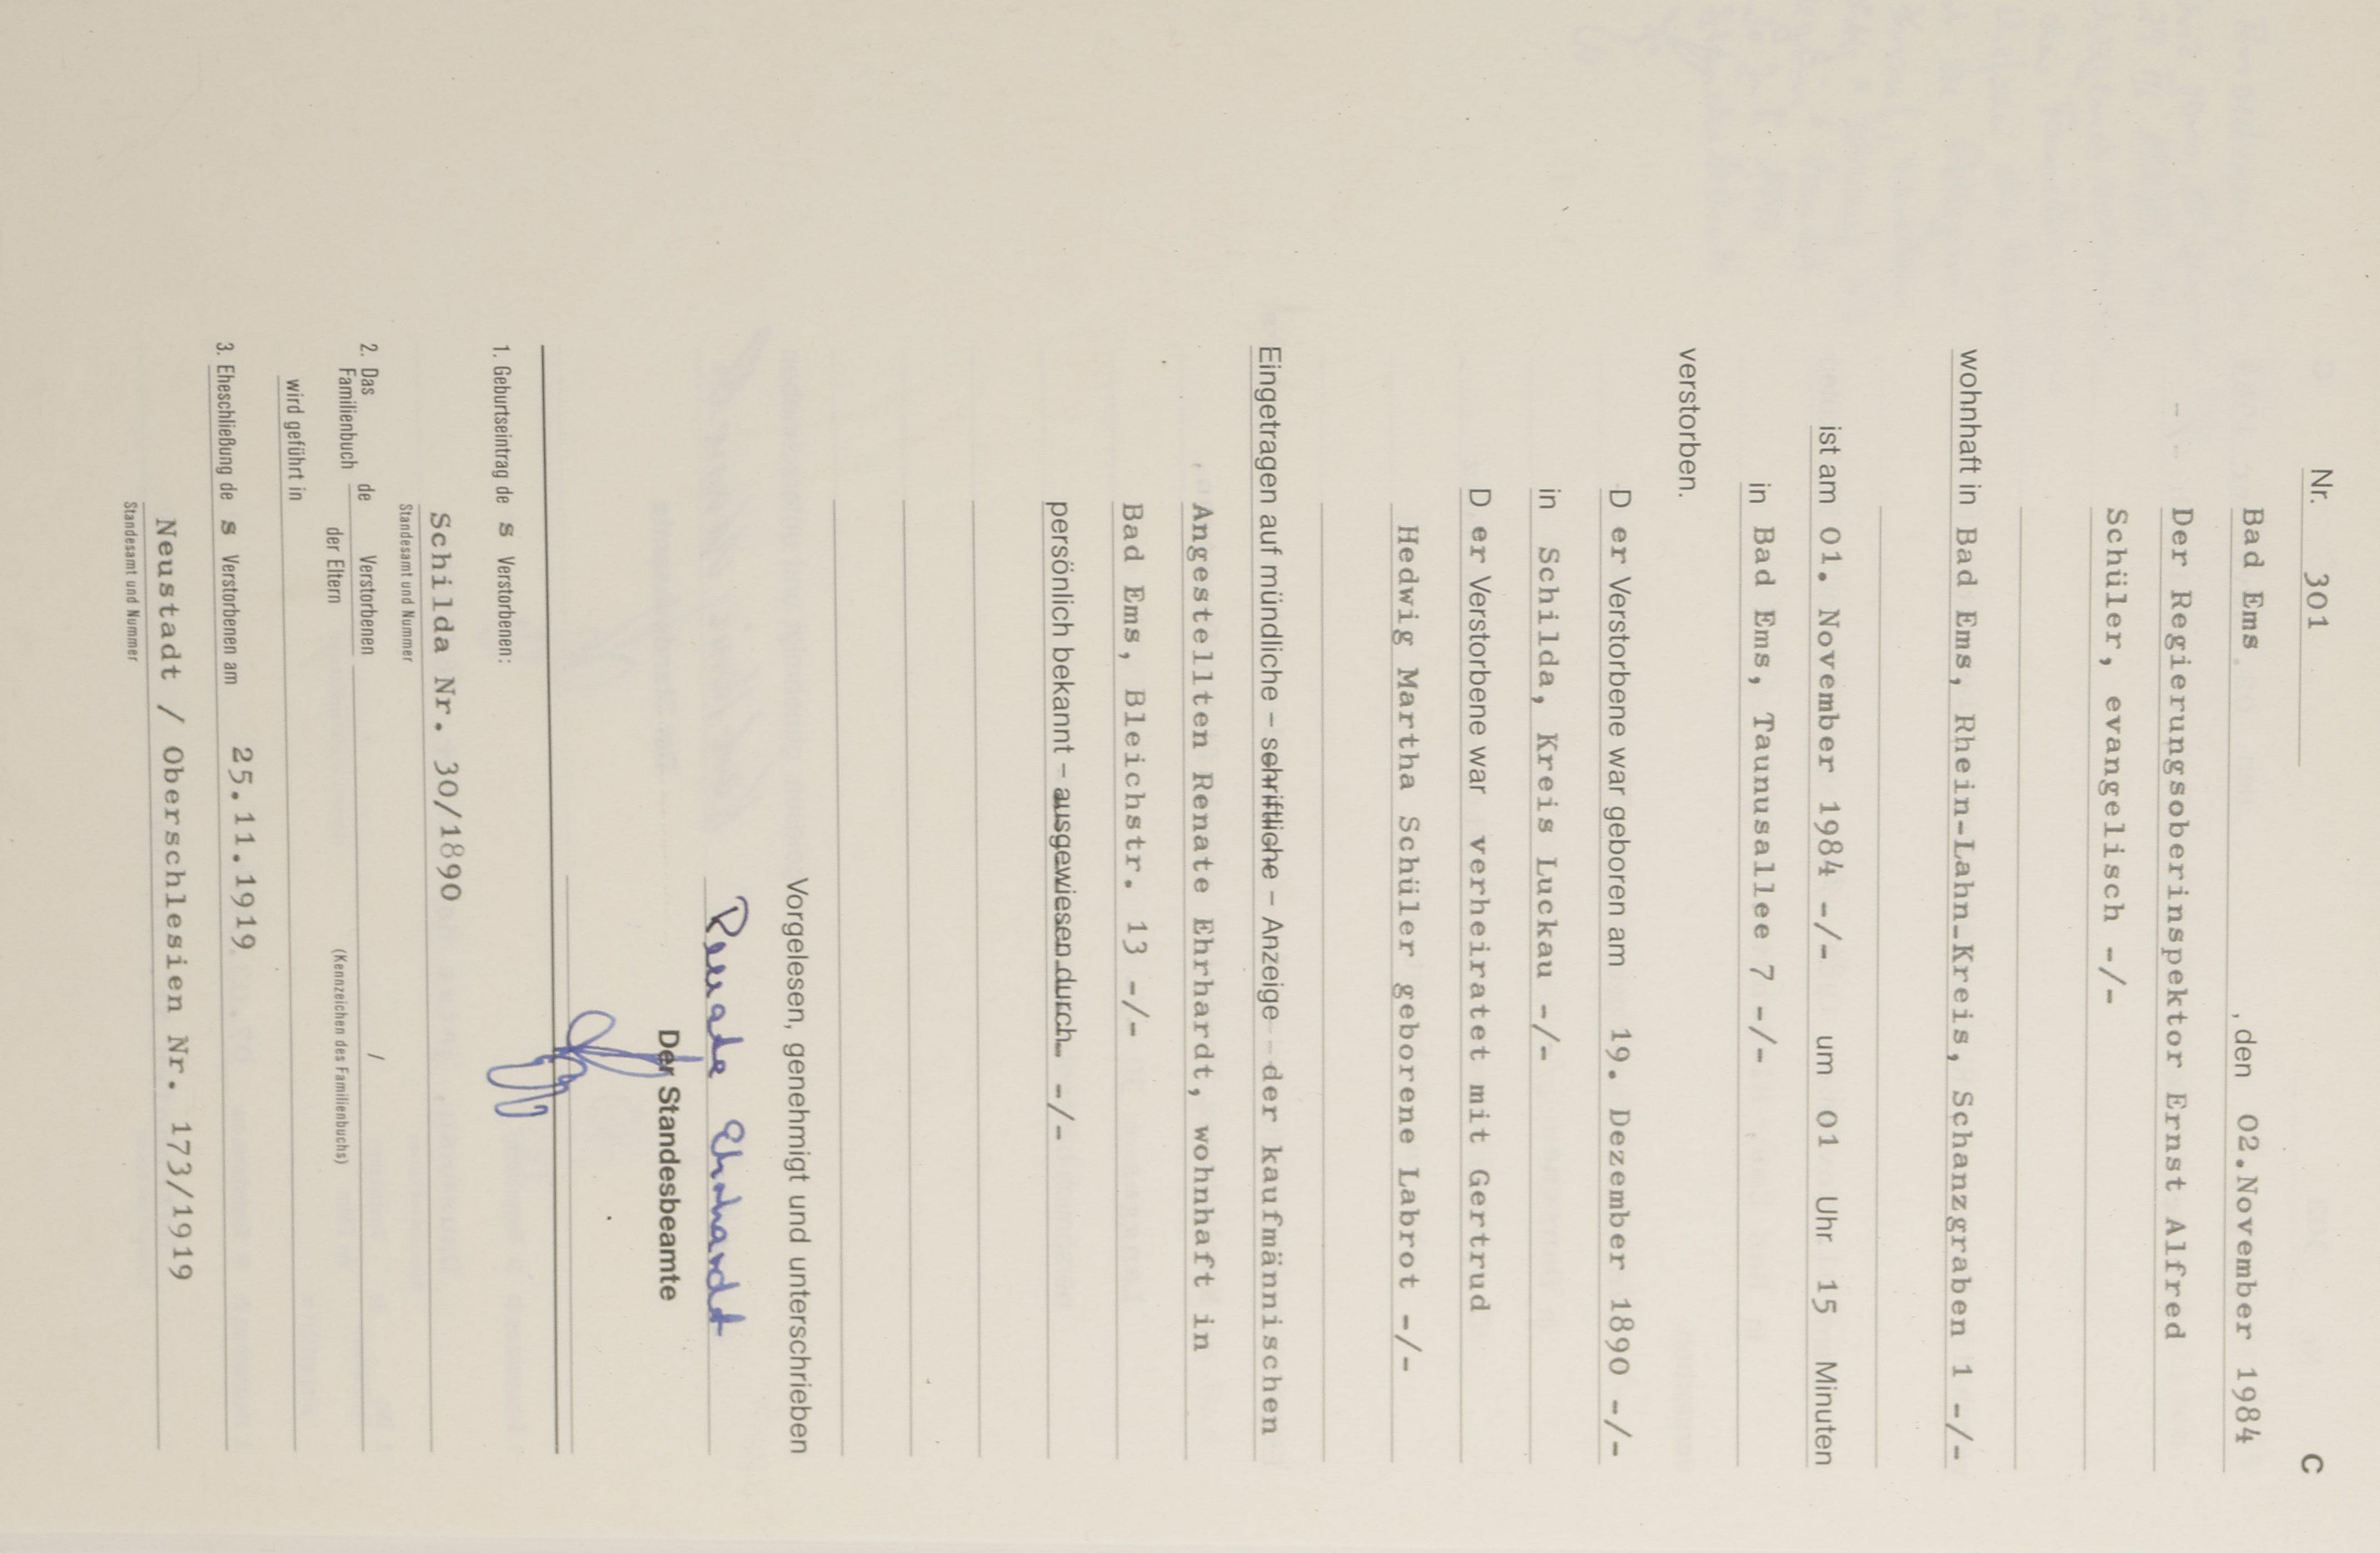 Nr. 301 C
Bad Ems , den 02.November 1984
Der Regierungsoberinspektor Ernst Alfred
Schüler, evangelisch -/-
wohnhaft in Bad Ems, Rhein-Lahn-Kreis, Schanzgraben 1 -/-
ist am 01. November 1984 -/- um 01 Uhr 15 Minuten
in Bad Ems, Taunusallee 7 -/-
verstorben.
D er Verstorbene war geboren am 19. Dezember 1890 -/-
in Schilda, Kreis Luckau -/-
D er Verstorbene war verheiratet mit Gertrud
Hedwig Martha Schüler geborene Labrot -/-
Eingetragen auf mündliche – schriftliche – Anzeige – der kaufmännischen
Angestellten Renate Ehrhardt, wohnhaft in
Bad Ems, Bleichstr. 13 -/-
persönlich bekannt – ausgewiesen durch -/-
Vorgelesen, genehmigt und unterschrieben
Renate Ehrhardt
Der Standesbeamte
1. Geburtseintrag de s Verstorbenen:
Schilda Nr. 30/1890
Standesamt und Nummer
2. Das Familienbuch de Verstorbenen /
der Eltern (Kennzeichen des Familienbuchs)
wird geführt in
3. Eheschließung de s Verstorbenen am 25.11.1919
Neustadt / Oberschlesien Nr. 173/1919
Standesamt und Nummer